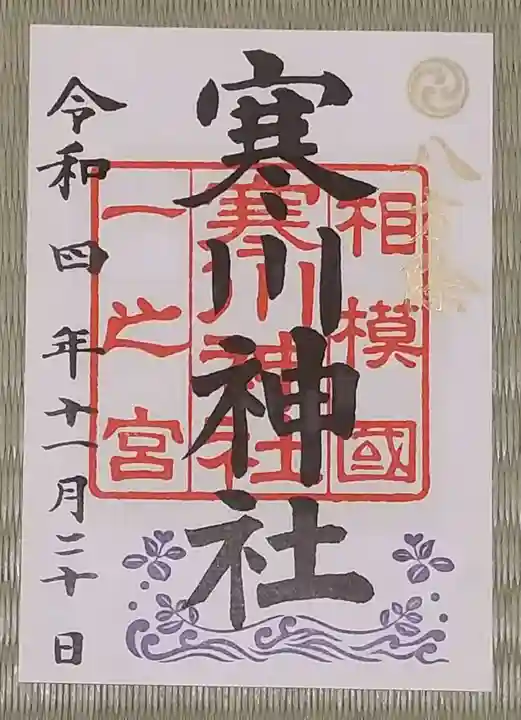 八方除
寒川神社
相模國
寒川神社
一之宮
令和四年十一月二十日